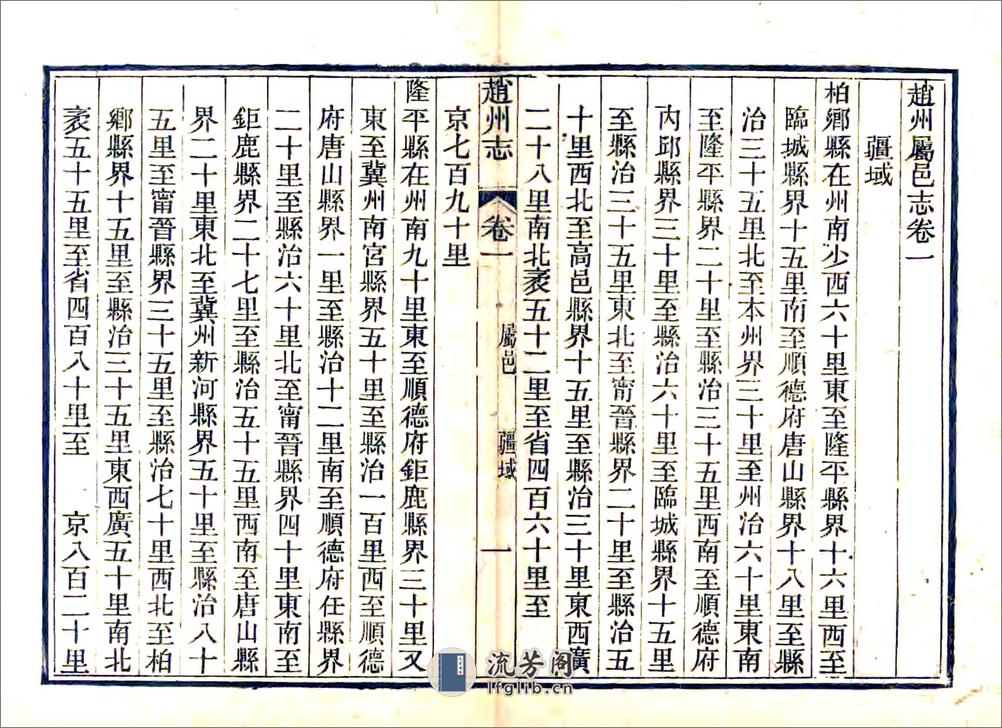 趙州屬邑志卷一
疆域
柏鄉縣在州南少西六十里東至隆平縣界十六里西至
臨城縣界十五里南至順德府唐山縣界十八里至縣
治三十五里北至本州界三十里至州治六十里東南
至隆平縣界二十里至縣治三十五里西南至順德府
內邱縣界三十里至縣治六十里至臨城縣界十五里
至縣治三十五里東北至甯晉縣界二十里至縣治五
十里西北至高邑縣界十五里至縣治三十里東西廣
二十八里南北袤五十二里至省四百六十里至
京七百九十里
趙州志 卷一 屬邑 疆域 一
隆平縣在州南九十里東至順德府鉅鹿縣界三十里又
東至冀州南宮縣界五十里至縣治一百里西至順德
府唐山縣界一里至縣治十二里南至順德府任縣界
二十里至縣治六十里北至甯晉縣界四十里東南至
鉅鹿縣界二十七里至縣治五十五里西南至唐山縣
界二十里東北至冀州新河縣界五十里至縣治八十
五里至甯晉縣界三十五里至縣治七十里西北至柏
鄉縣界十五里至縣治三十五里東西廣五十里南北
袤五十五里至省四百八十里至 京八百二十里
流芳阁
lfglib.cn